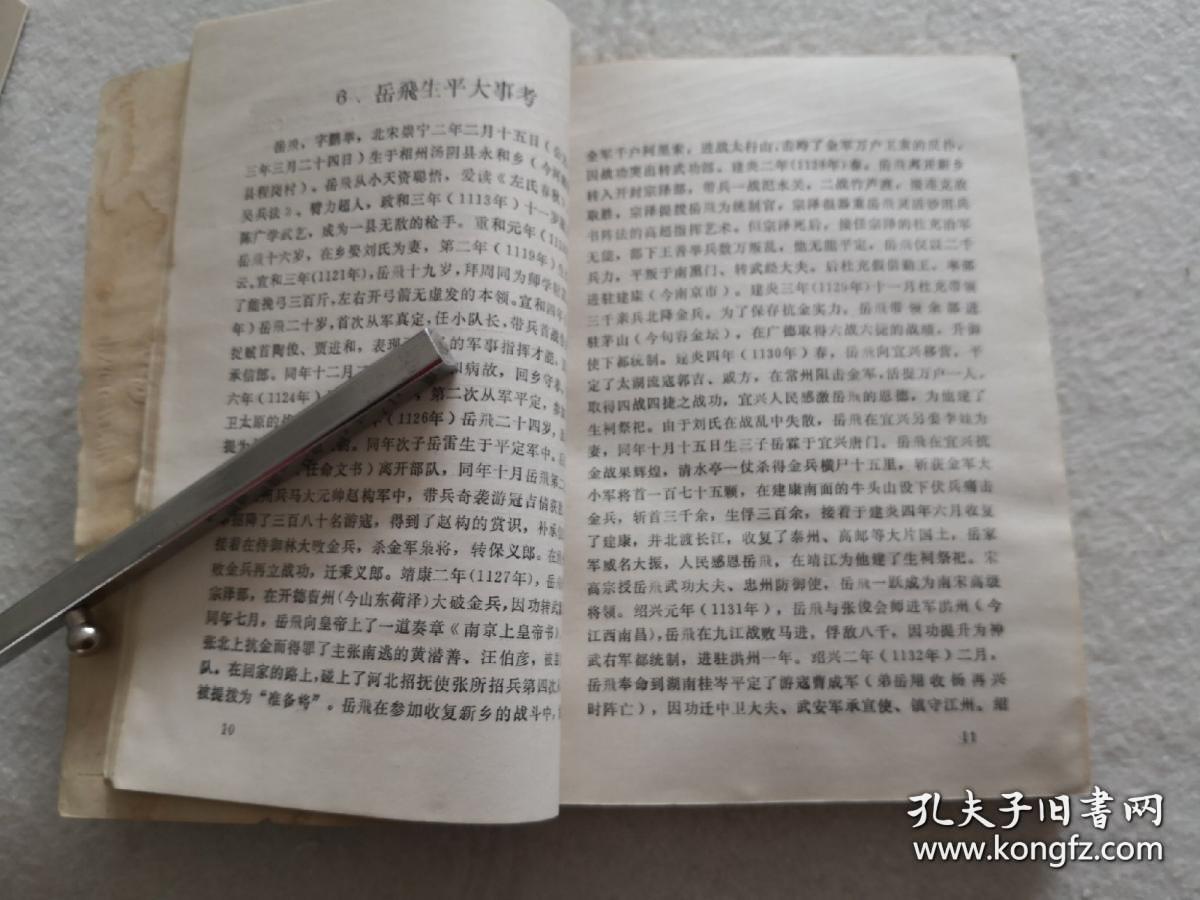 6、岳飛生平大事考
岳飛，字鹏举，北宋崇宁二年二月十五日（公
三年三月二十四日）生于相州汤阴县永和乡（今河南
县程岗村）。岳飛从小天资聪悟，爱读《左氏春秋》
吴兵法》、臂力超人，政和三年（1113年）十一岁
陈广学武艺，成为一县无敌的枪手。重和元年（111
岳飛十六岁，在乡娶刘氏为妻，第二年（1119年）生
云，宣和三年(1121年)，岳飛十九岁，拜周同为师学
了能挽弓三百斤，左右开弓箭无虚发的本领。宣和四年
年）岳飛二十岁，首次从军真定，任小队长，带兵首战
捉贼首陶俊、贾进和，表现 的军事指挥才能，
承信郎。同年十二月 和病故，回乡守
六年（1124年） ，第二次从军平定，参
卫太原的 （1126年）岳飛二十四岁，
提为 。同年次子岳雷生于平定军中。
、任命文书）离开部队，同年十月岳飛第
州兵马大元帅赵构军中，带兵奇袭游冠吉倩获
招降了三百八十名游寇，得到了赵构的赏识，补承
接着在侍御林大败金兵，杀金军枭将，转保义郎。在
败金兵再立战功，迁秉义郎。靖康二年（1127年），岳
宗泽部，在开德曹州（今山东荷泽）大破金兵，因功转武
同年七月，岳飛向皇帝上了一道奏章《南京上皇帝书》
张北上抗金而得罪了主张南逃的黄潜善、汪伯彦，被
队。在回家的路上，碰上了河北招抚使张所招兵第四次
被提拨为“准备将”。岳飛在参加收复新乡的战斗中，
10
金军千户阿里索，进战太行山，击 了金军万户王索的反扑，
因战功突出转武功郎。建炎二年(1128年）春。岳飛离开新乡
转入开封宗泽部，带兵一战汜水关，二战竹芦渡，接连克敌
取胜，宗泽提拨岳飛为统制官，宗泽很器重岳飛灵活妙用兵
书阵法的高超指挥艺术。但宗泽死后，接任宗泽的杜充治军
无能，部下王善举兵数万叛乱，他无能平定，岳飛仅以二千
兵力，平叛于南熏门、转武经大夫。后杜充假借勤王，率部
进驻建康（今南京市）。建炎三年(1129年)十一月杜充带领
三千亲兵北降金兵。为了保存抗金实力，岳飛带领余部进
驻茅山（今句容金坛），在广德取得六战六捷的战绩，升御
使下都统制。建炎四年（1130年）春，岳飛向宜兴移营，平
定了太湖流寇郭吉、戚方，在常州阻击金军，活捉万户一人，
取得四战四捷之战功，宜兴人民感激岳飛的恩德，为他建了
生祠祭祀。由于刘氏在战乱中失散，岳飛在宜兴另娶李娃为
妻，同年十月十五日生三子岳霖于宜兴唐门。岳飛在宜兴抗
金战果辉煌，清水亭一仗杀得金兵横尸十五里，斩获金军大
小军将首一百七十五颗，在建康南面的牛头山设下伏兵痛击
金兵，斩首三千余，生俘三百余，接着于建炎四年六月收复
了建康，并北渡长江，收复了泰州、高邮等大片国土，岳家
军威名大振，人民感恩岳飛，在靖江为他建了生祠祭祀。宋
高宗授岳飛武功大夫、忠州防御使，岳飛一跃成为南宋高级
将领。绍兴元年（1131年），岳飛与张俊会师进军洪州（今
江西南昌），岳飛在九江战败马进，俘敌八千，因功提升为神
武右军都统制，进驻洪州一年。绍兴二年（1132年）二月，
岳飛奉命到湖南桂岑平定了游寇曹成军（弟岳翔收杨再兴
时阵亡），因功迁中卫大夫、武安军承宣使、镇守江州。绍
11
孔夫子旧书网
www.kongfz.com